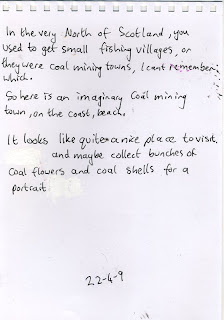 In the very North of Scotland, you
used to get small fishing villages, or
they were Coal mining towns, I cant remember
which.
So here is an imaginary Coal mining
town, on the coast, beach.
It looks like quite a nice place to visit.
and maybe collect bunches of
Coal flowers and coal shells for a
portrait
22-4-9